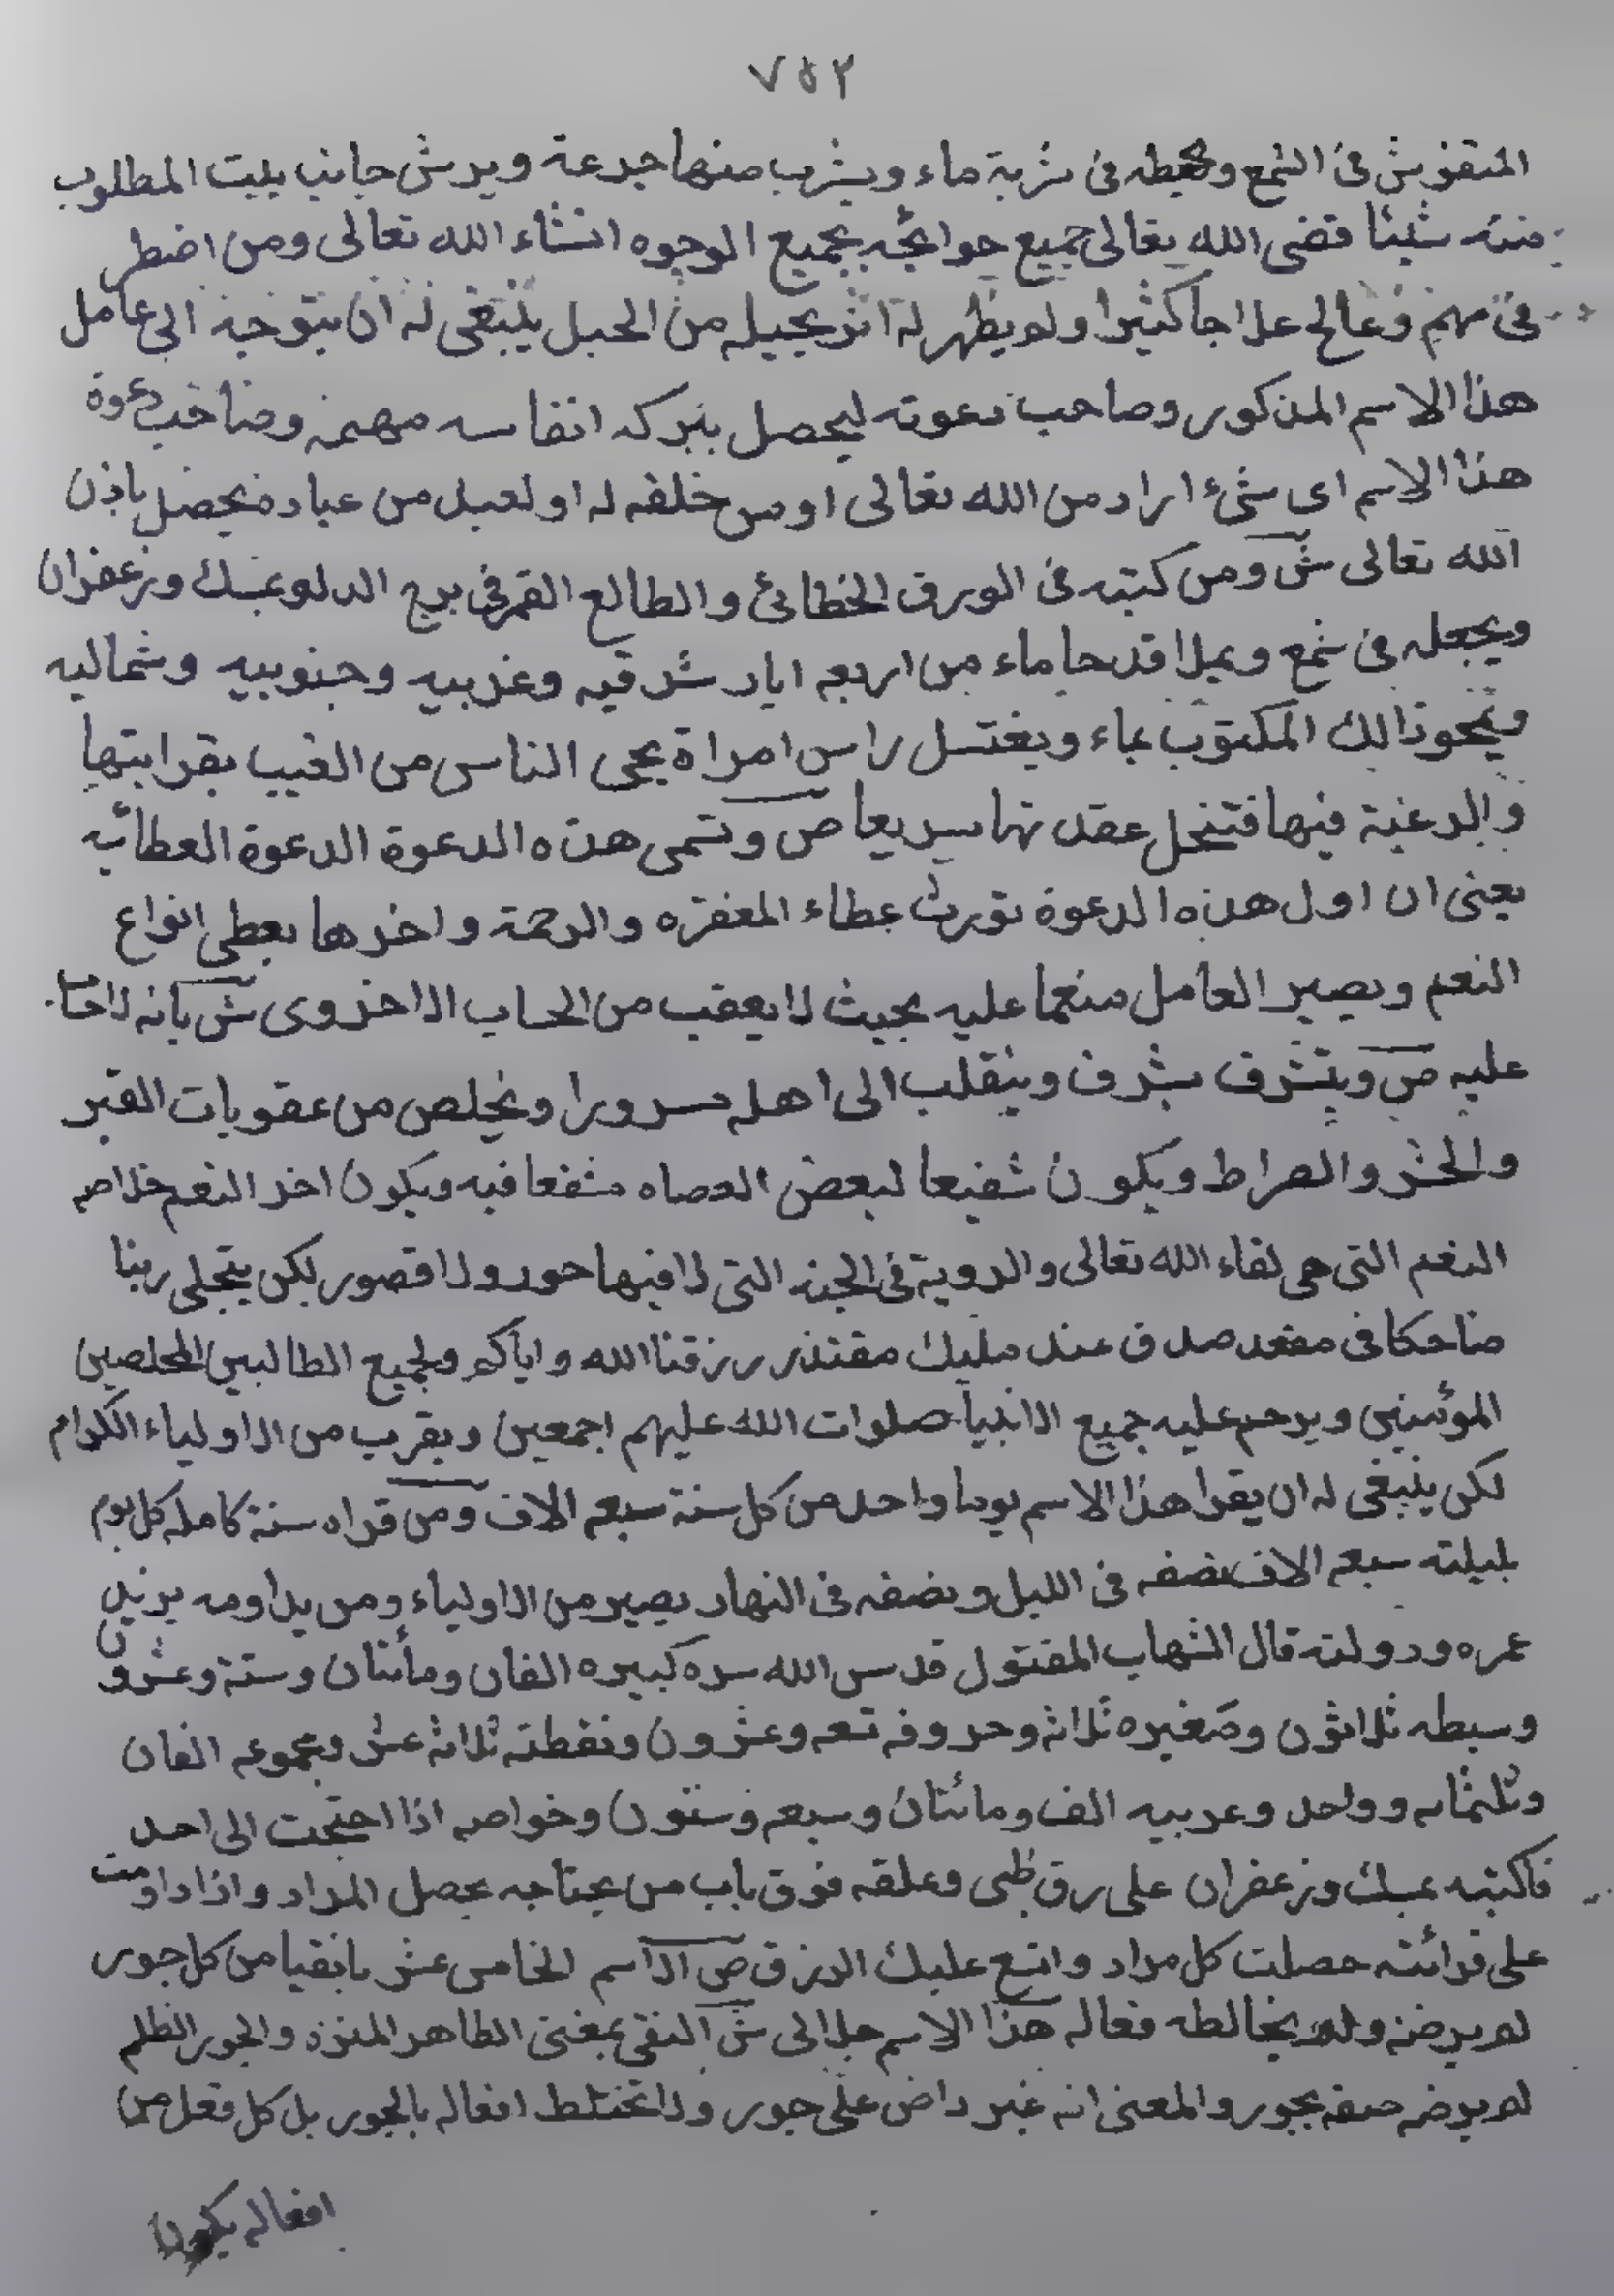 ٧٥٢
المنقوش فى الشمع ويحطه فى شربة ماء ويشرب منها جرعة ويرش جانب بيت المطلوب
منه شيئا قضى الله تعالى جميع حوائجه بجميع الوجوه انشاء الله تعالى ومن اضطر
فى مهم وعالج علاجا كثيرا ولم يظهر له اثر بحيله من الحيل ينبغى له ان يتوجه الى عامل
هذا الاسم المذكور وصاحب دعوته ليحصل ببركه انفاسه مهمه وصاحب دعوة
هذا الاسم اى شئ اراد من الله تعالى او من خلقه له او لعبد من عباده يحصل باذن
الله تعالى ش ومن كتبه فى الورق الخطائى والطالع القمر فى برج الدلو بمسك وزعفران
ويجعله فى شمع ويملا قدحا ماء من اربعه ابار شرقيه وغربيه وجنوبيه وشماليه
ويمحو ذالك المكتوب بماء ويغتسل راس امراة يجى الناس من الغيب بقرابتها
والرغبة فيها فتنحل عقدتها سريعا ص وتسمى هذه الدعوة الدعوة العطائيه
يعنى ان اول هذه الدعوة تورث عطاء المغفره والرحمة واخرها يعطى انواع
النعم ويصير العامل منعما عليه بحيث لا يعقب من الحساب الاخروى ش بانه لاحسا
عليه ص ويتشرف بشرف وينقلب الى اهله مسرورا ويخلص من عقوبات القبر
والحشر والصراط ويكون شفيعا لبعض العصاه مشفعا فيه ويكون اخر النعم خلاصه
النعم التى هى لقاء الله تعالى والروية فى الجنه التى لا فيها حور ولا قصور لكن يتجلى ربنا
ضاحكا فى مقعد صدق عند مليك مقتدر رزقنا الله واياكم ولجميع الطالبين المخلصين
المؤمنين ويرحم عليه جميع الانبيا صلوات الله عليهم اجمعين ويقرب من الاولياء الكرام
لكن ينبغى له ان يقرا هذا الاسم يوما واحد من كل سنة سبعه الاف ومن قراه سنة كامله كل يوم
بليلته سبعه الاف نصفه فى الليل ونصفه فى النهار يصير من الاولياء ومن يداومه يزيد
عمره ودولته قال الشهاب المقتول قدس الله سره كبيره الفان ومأتان وستة وعشرون
وسيطه ثلاثون وصغيره ثلاثه وحروفه تسعه وعشرون ونقطته ثلاثه عشر ومجموعه الفان
وثلثمائه وواحد وعربيه الف ومائتان وسبعه وستون وخواصه اذا احتجت الى احد
فاكتبه بمسك وزعفران على رق ظبى وعلقه فوق باب من يحتاجه يحصل المراد واذا داومت
على قرائته حصلت كل مراد واتسع عليك الرزق ص الاسم الخامس عشر يا نقيا من كل جور
لم يرضه ولم يخالطه فعاله هذا الاسم جلالى ش النقى بمعنى الطاهر المنزه والجور الظلم
لم يرضه صفه بجور والمعنى انه غير راض على جور ولا تختلط افعاله بالجور بل كل فعل من
افعاله يكون